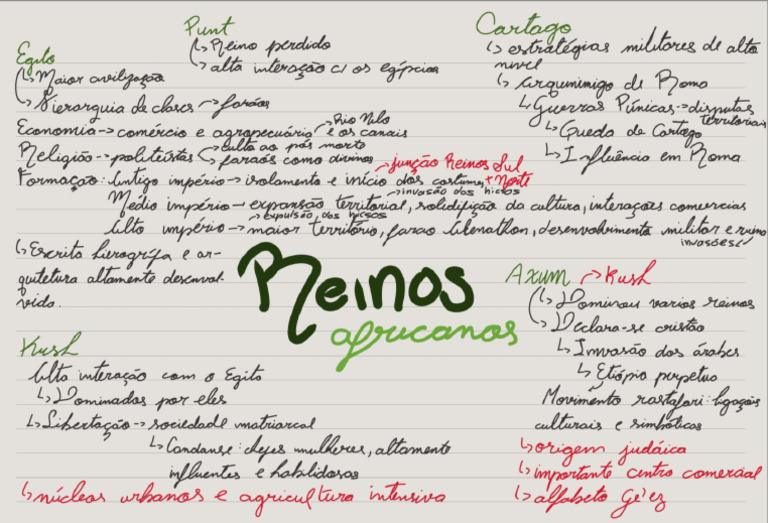 Punt
↳ Reino perdido
↳ alta interação c/ os egípcios
Cartago
↳ estratégias militares de alta
nível
↳ Arquinimigo de Roma
↳ Guerras Púnicas → disputas
territoriais
↳ Queda de Cartago
↳ Influência em Roma
Egito
↳ Maior civilização
↳ Hierarquia de clases → faraós
Economia → comércio e agropecuária → Rio Nilo
e os canais
Religião → politeístas → culto ao pós morte
faraós como divinos
Formação: Antigo império → isolamento e início dos costumes → junção Reinos Sul
+ Norte
→ invasão dos hicsos
Médio império → expansão territorial, solidifição da cultura, interações comerciais
→ expulsão dos hicsos
Alto império → maior território, farao Akenathon, desenvolvimento militar e ruino
invasões!
↳ Escrita hierogrífa e ar-
quitetura altamente desenvol-
vida.
Reinos
africanos
Axum → Kush
↳ Dominou varios reinos
↳ Declara-se cristão
↳ Invasão dos árabes
↳ Etiópia perpetua
Movimento rastafari: ligações
culturais e simbóticas
↳ origem judáica
↳ importante centro comercial
↳ alfabeto Ge'ez
Kush
Alta interação com o Egito
↳ Dominados por eles
↳ Libertação → sociedade matriarcal
↳ Candanse: chefes mulheres, altamente
influentes e habilidosas
↳ núcleos urbanos e agricultura intensiva